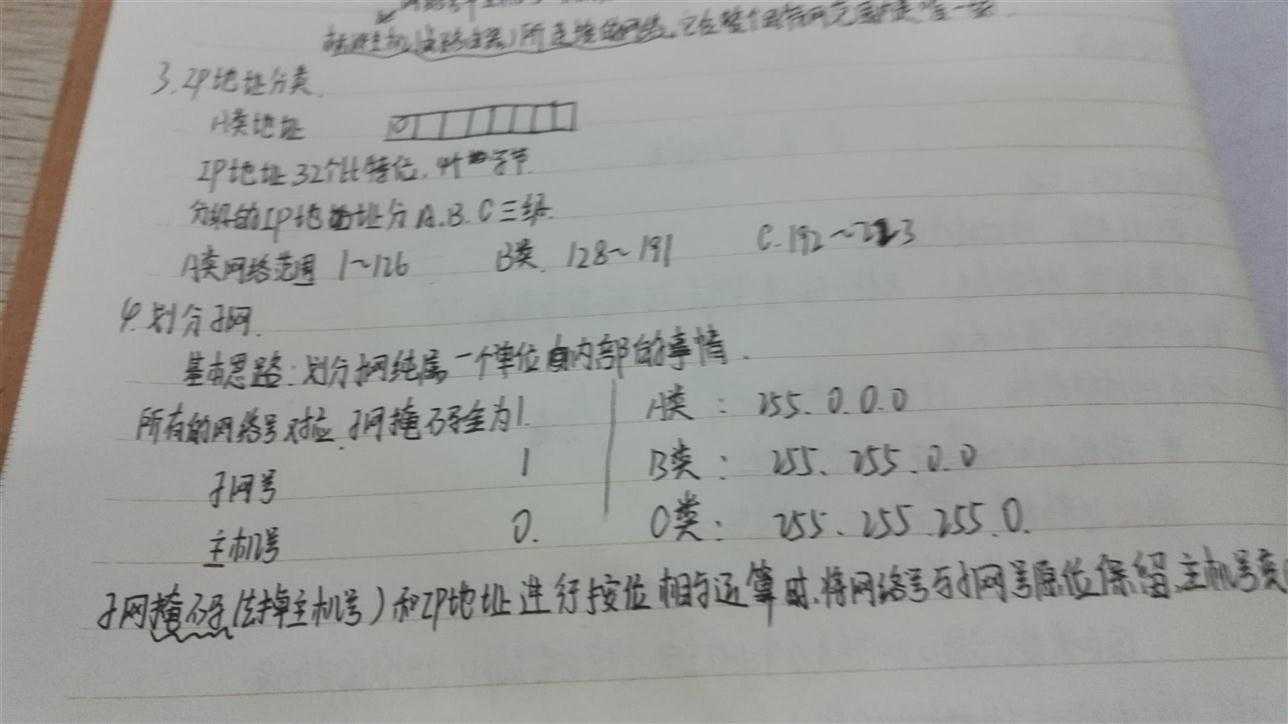 标识主机(或路由器)所连接的网络,它在整个因特网范围内是唯一的
3.IP地址分类.
A类地址 0
IP地址32个比特位,4个字节.
分级的IP地址分A.B.C三级.
A类网络范围 1~126 B类. 128~191 C.192~223
4.划分子网.
基本思路:划分子网纯属一个单位内部的事情.
所有的网络号对应子网掩码全为1. A类: 255.0.0.0
子网号 1 B类: 255.255.0.0
主机号 0. C类: 255.255.255.0.
子网掩码(去掉主机号)和IP地址进行按位相与运算时.将网络号与子网号原位保留,主机号类